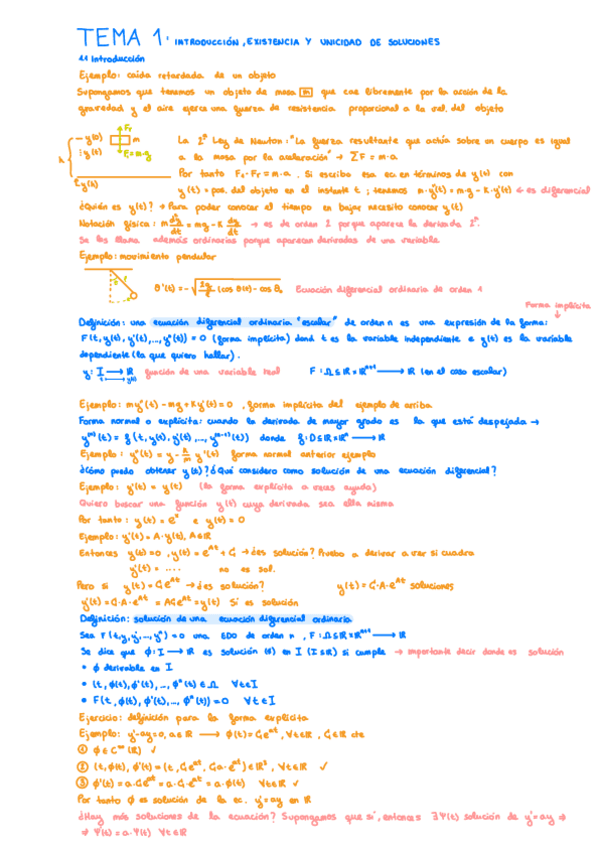 TEMA 1: INTRODUCCIÓN, EXISTENCIA Y UNICIDAD DE SOLUCIONES
1.1 Introducción
Ejemplo: caída retardada de un objeto
Supongamos que tenemos un objeto de masa m que cae libremente por la acción de la
gravedad y el aire ejerce una fuerza de resistencia proporcional a la vel. del objeto
La 2ª Ley de Newton: "La fuerza resultante que actúa sobre un cuerpo es igual
a la masa por la aceleración" → ΣF = m·a
Por tanto Fg - Fr = m·a. Si escribo esa ec en términos de y(t) con
y(t) = pos. del objeto en el instante t; tenemos m·y''(t) = m·g - K·y'(t) ← es diferencial
¿Quién es y(t)? → Para poder conocer el tiempo en bajar necesito conocer y(t)
Notación física: → es de orden 2 porque aparece la derivada 2ª.
Se les llama además ordinarias porque aparecen derivadas de una variable
Ejemplo: movimiento pendular
θ'(t) = -√(2g/l (cos θ(t) - cos θ₀ Ecuación diferencial ordinaria de orden 1
Forma implícita
Definición: una ecuación diferencial ordinaria "escalar" de orden n es una expresión de la forma:
F(t, y(t), y'(t), ..., yⁿ(t)) = 0 (forma implícita) dond t es la variable independiente e y(t) es la variable
dependiente (la que quiero hallar).
y: I → ℝ función de una variable real F: Ω ⊆ ℝ×ℝⁿ⁺¹ → ℝ (en el caso escalar)
Ejemplo: my''(t) - mg + Ky'(t) = 0, forma implícita del ejemplo de arriba
Forma normal o explícita: cuando la derivada de mayor grado es la que está despejada →
y⁽ⁿ⁾(t) = f(t, y(t), y'(t), ..., y⁽ⁿ⁻¹⁾(t)) donde f: D ⊆ ℝ×ℝⁿ → ℝ
Ejemplo: y''(t) = g - K/m y'(t) forma normal anterior ejemplo
¿Cómo puedo obtener y(t)? ¿Qué considero como solución de una ecuación diferencial?
Ejemplo: y'(t) = y(t) (la forma explícita a veces ayuda)
Quiero buscar una función y(t) cuya derivada sea ella misma
Por tanto: y(t) = eᵗ e y(t) = 0
Ejemplo: y'(t) = A·y(t), A∈ℝ
Entonces y(t) = 0, y(t) = eᴬᵗ + C → ¿es solución? Prueba a derivar a ver si cuadra
y'(t) = .... no es sol.
Pero si y(t) = C·eᴬᵗ → ¿es solución? y(t) = C·A·eᴬᵗ soluciones
y'(t) = C·A·eᴬᵗ = ACeᴬᵗ = y(t) Si es solución
Definición: solución de una ecuación diferencial ordinaria
Sea F(t, y, y', ..., yⁿ) = 0 una EDO de orden n, F: Ω ⊆ ℝ×ℝⁿ⁺¹ → ℝ
Se dice que ϕ: I → ℝ es solución (s) en I (I ⊆ ℝ) si cumple → importante decir donde es solución
• ϕ derivable en I
• (t, ϕ(t), ϕ'(t), ..., ϕⁿ(t)) ∈ Ω ∀t∈I
• F(t, ϕ(t), ϕ'(t), ..., ϕⁿ(t)) = 0 ∀t∈I
Ejercicio: definición para la forma explícita
Ejemplo: y' - ay = 0, a∈ℝ → ϕ(t) = Ceᵃᵗ, ∀t∈ℝ, C∈ℝ cte
① ϕ ∈ C^∞(ℝ) ✓
② (t, ϕ(t), ϕ'(t)) = (t, Ceᵃᵗ, Ca·eᵃᵗ) ∈ ℝ³, ∀t∈ℝ ✓
③ ϕ'(t) = a·Ceᵃᵗ = a·C·eᵃᵗ = a·ϕ(t) ∀t∈ℝ ✓
Por tanto ϕ es solución de la ec. y' = ay en ℝ
¿Hay más soluciones de la ecuación? Supongamos que sí, entonces ∃Ψ(t) solución de y' = ay ⇒
⇒ Ψ'(t) = a·Ψ(t) ∀t∈ℝ